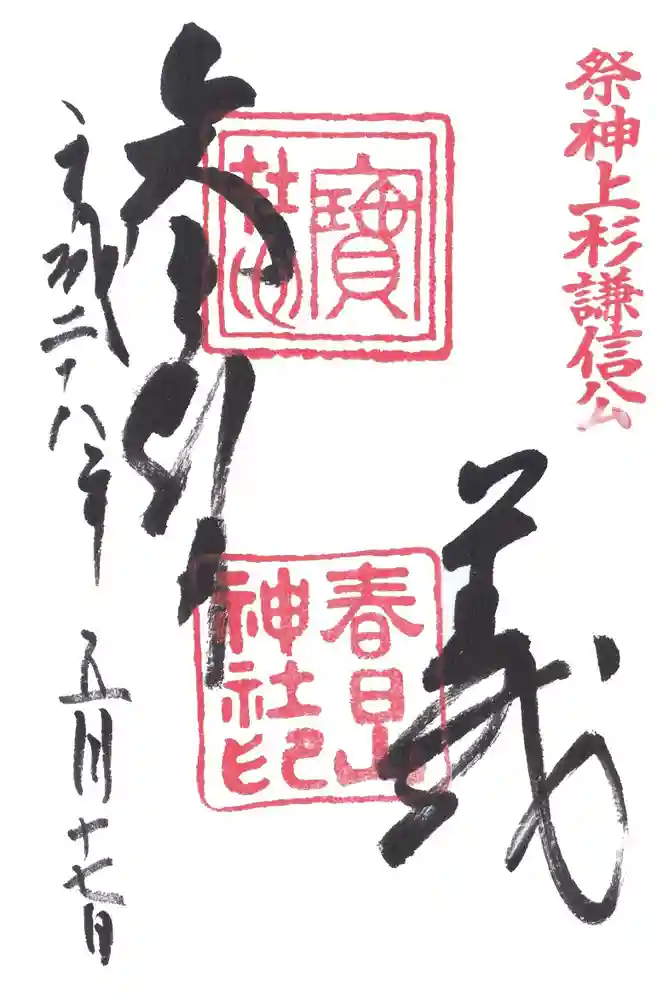 祭神上杉謙信公
義
寶
在心
春日山
神社印
平成二十八年 五月十七日